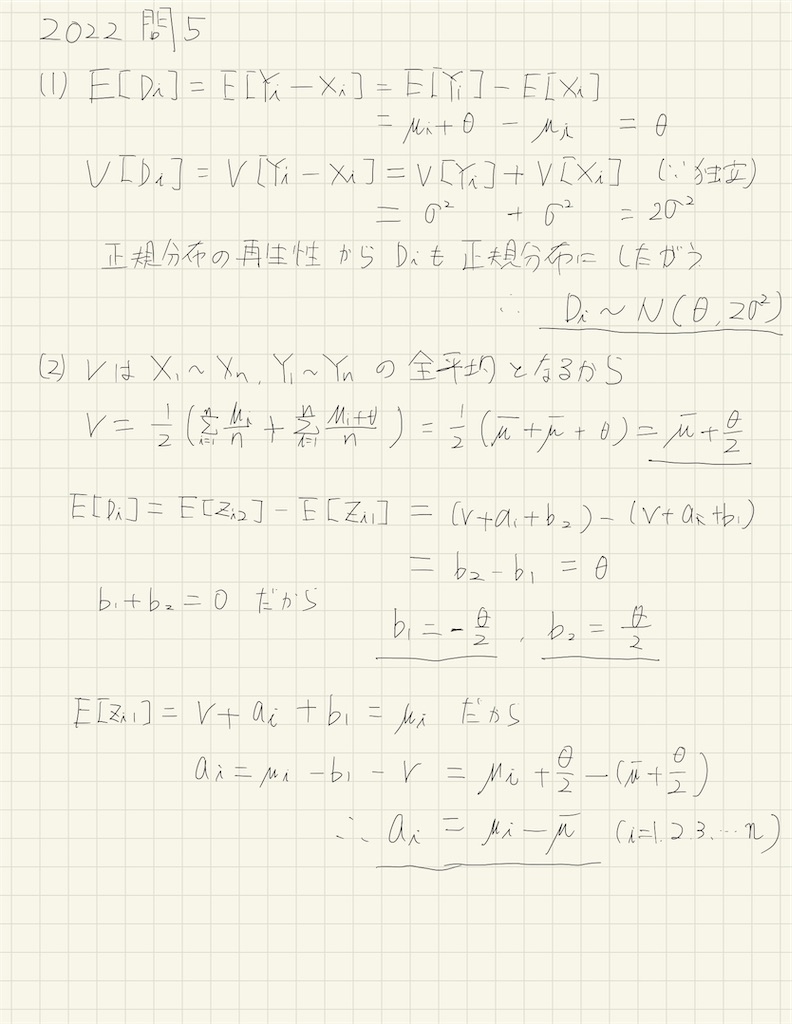 2022 問5
(1) E[Di] = E[Yi − Xi] = E[Yi] − E[Xi]
= μi + θ − μi = θ
V[Di] = V[Yi − Xi] = V[Yi] + V[Xi] (∵独立)
= σ² + σ² = 2σ²
正規分布の再生性から Diも正規分布にしたがう
∴ Di ~ N(θ, 2σ²)
(2) νは X₁~Xn, Y₁~Yn の全平均となるから
ν = 1/2 (Σ_{i=1}^{n} μi/n + Σ_{i=1}^{n} (μi+θ)/n) = 1/2 (μ̄ + μ̄ + θ) = μ̄ + θ/2
E[Di] = E[Zi2] − E[Zi1] = (ν + ai + b₂) − (ν + ai + b₁)
= b₂ − b₁ = θ
b₁ + b₂ = 0 だから
b₁ = −θ/2, b₂ = θ/2
E[Zi1] = ν + ai + b₁ = μi だから
ai = μi − b₁ − ν = μi + θ/2 − (μ̄ + θ/2)
∴ ai = μi − μ̄ (i=1.2.3.…n)